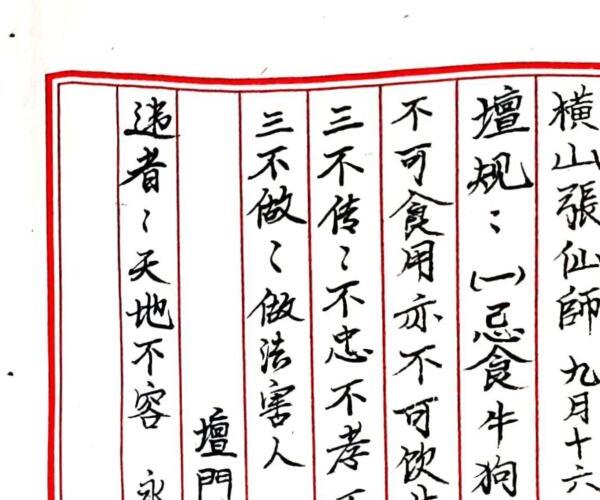 橫山張仙師 九月十六
壇规：(一)忌食牛狗
不可食用亦不可饮
三不传：不忠不孝
三不做：做法害人
壇門
违者：天地不容 永